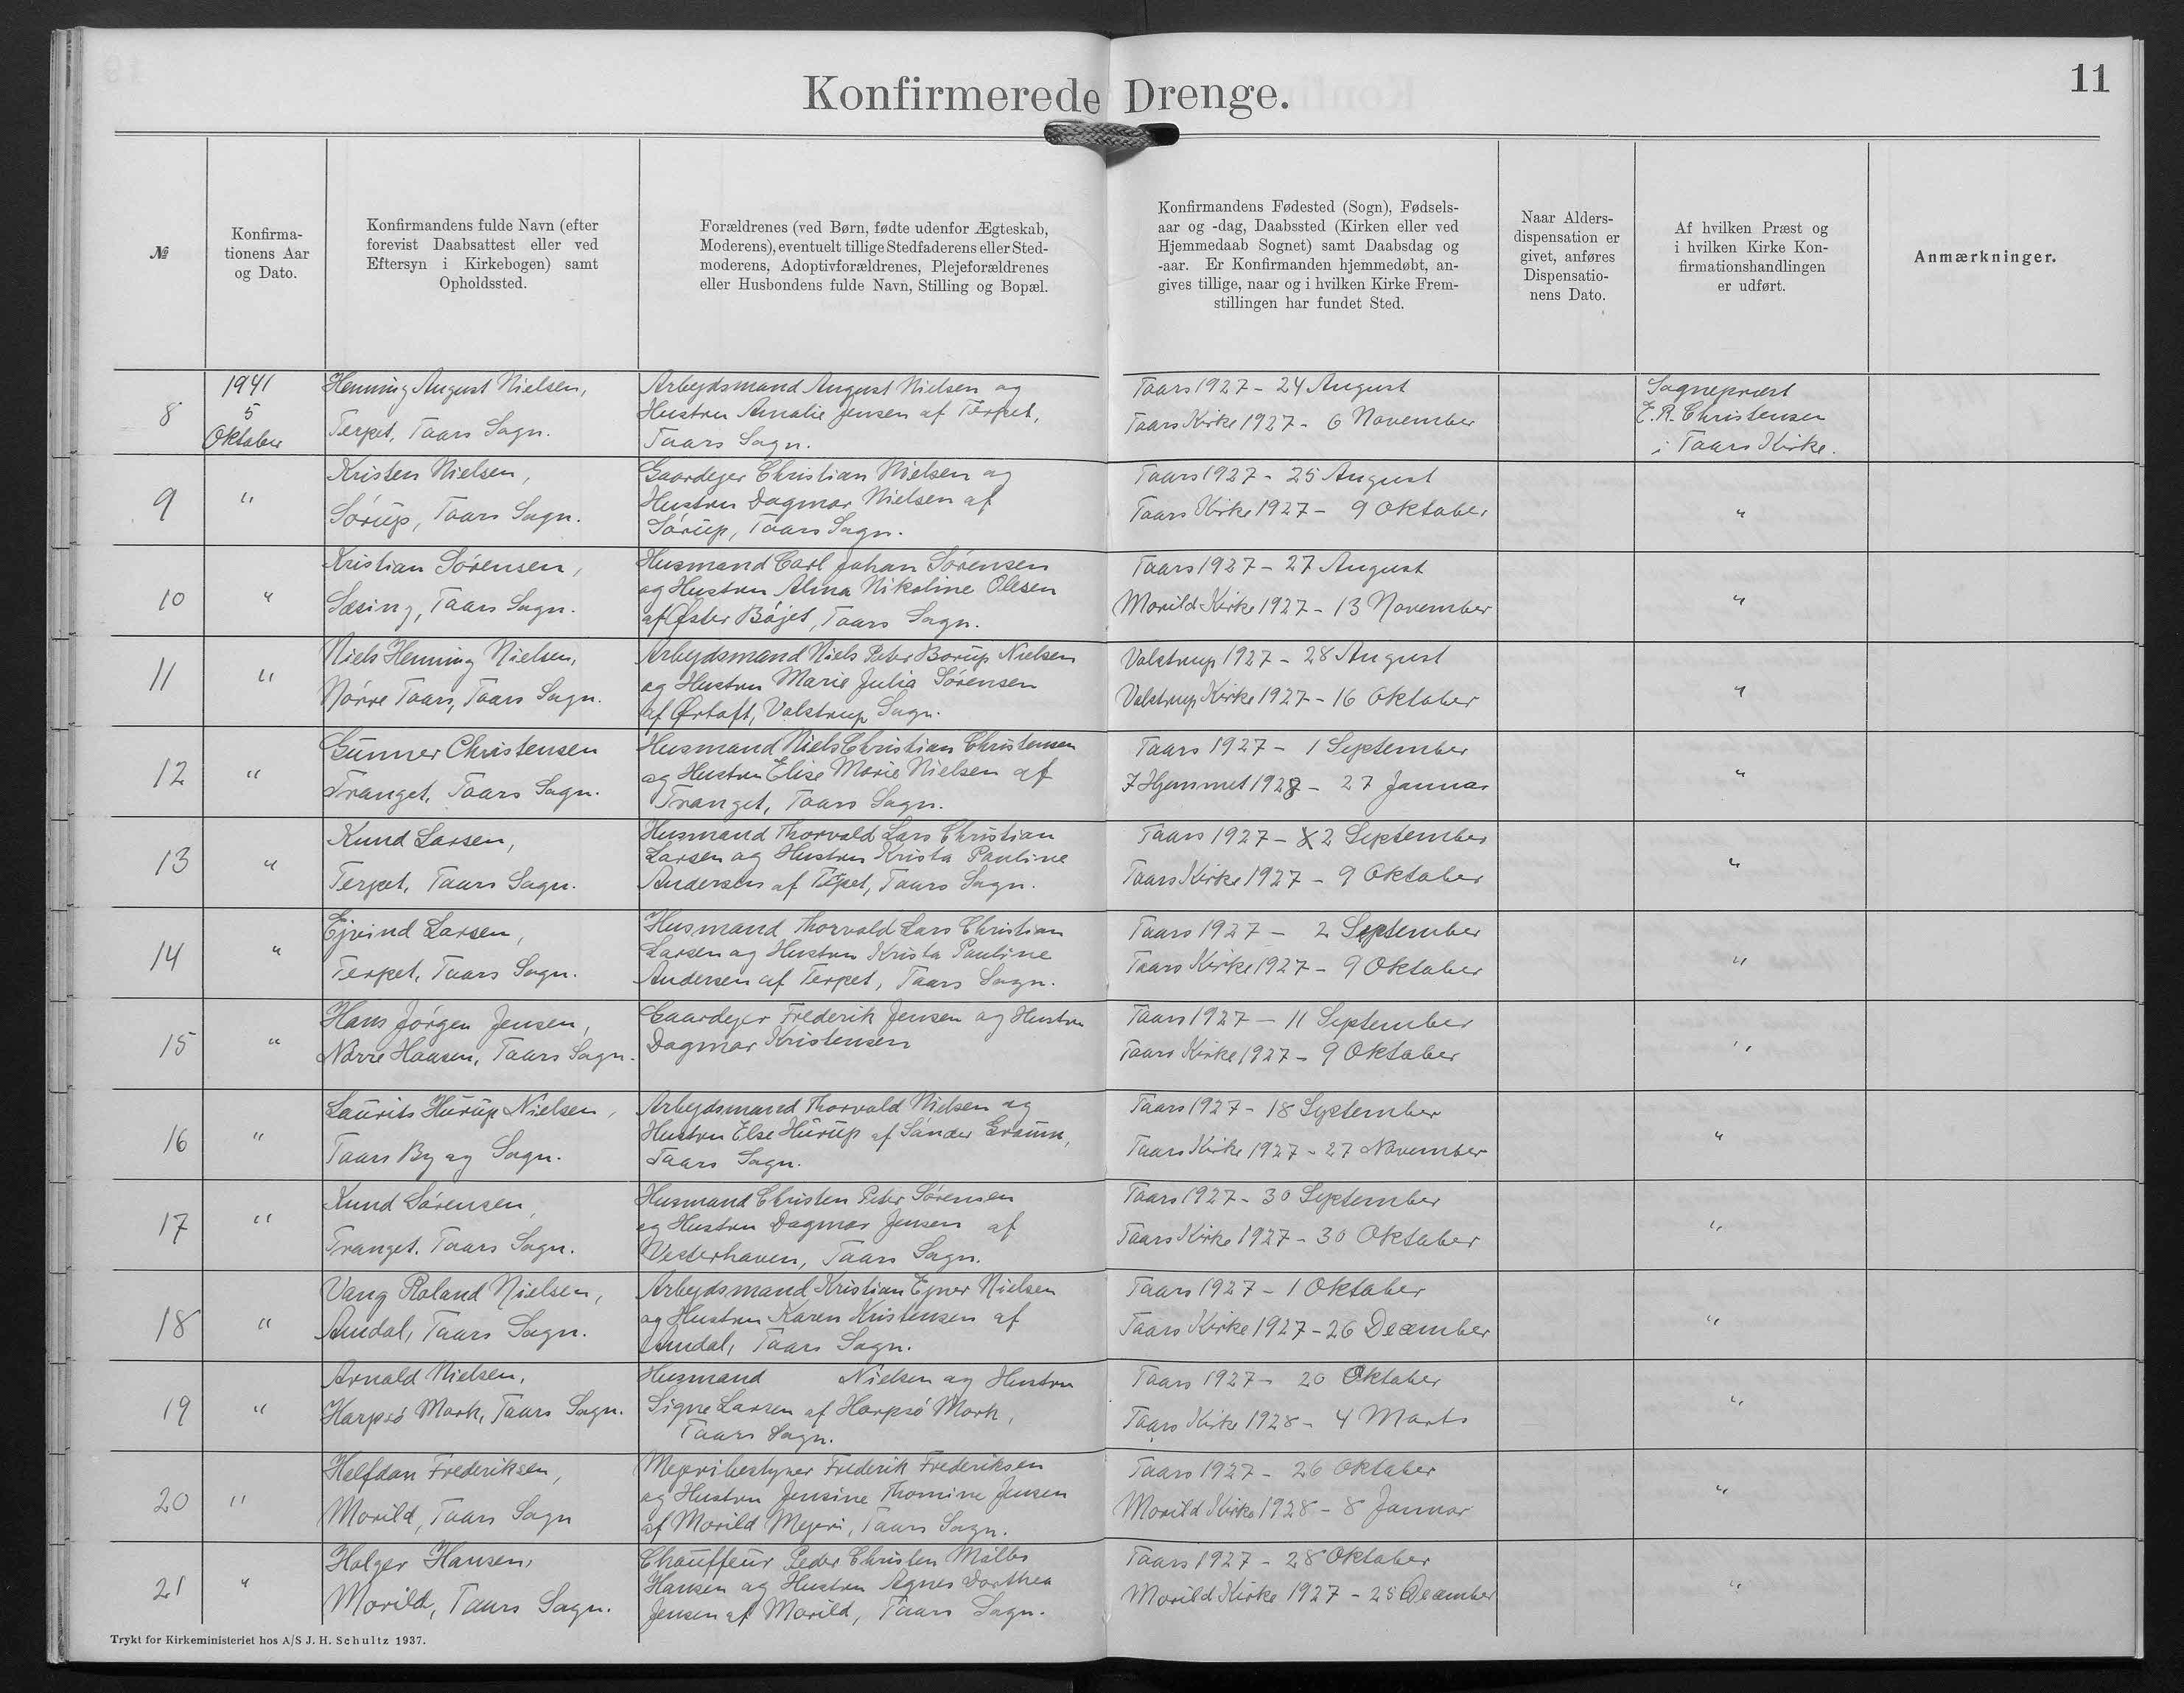 Konfirmerede Drenge.
11
№
Konfirma-
tionens Aar
og Dato.
Konfirmandens fulde Navn (efter
forevist Daabsattest eller ved
Eftersyn i Kirkebogen) samt
Opholdssted.
Forældrenes (ved Børn, fødte udenfor Ægteskab,
Moderens), eventuelt tillige Stedfaderens eller Sted-
moderens, Adoptivforældrenes, Plejeforældrenes
eller Husbondens fulde Navn, Stilling og Bopæl.
Konfirmandens Fødested (Sogn), Fødsels-
aar og -dag, Daabssted (Kirken eller ved
Hjemmedaab Sognet) samt Daabsdag og
-aar. Er Konfirmanden hjemmedøbt, an-
gives tillige, naar og i hvilken Kirke Frem-
stillingen har fundet Sted.
Naar Alders-
dispensation er
givet, anføres
Dispensatio-
nens Dato.
Af hvilken Præst og
i hvilken Kirke Kon-
firmationshandlingen
er udført.
Anmærkninger.
8
1941
5
Oktober
Henning August Nielsen,
Terpet, Taars Sogn.
Arbejdsmand August Nielsen og
Hustru Amalie Jensen af Terpet,
Taars Sogn.
Taars 1927 - 24 August
Taars Kirke 1927 - 6 November
Sognepræst
E. R. Christensen
i Taars Kirke.
9
"
Kristen Nielsen,
Sörup, Taars Sogn.
Gaardejer Christian Nielsen og
Hustru Dagmar Nielsen af
Sörup, Taars Sogn.
Taars 1927 - 25 August
Taars Kirke 1927 - 9 Oktober
"
10
"
Kristian Sörensen,
Sæsing, Taars Sogn.
Husmand Carl Johan Sörensen
og Hustru Alma Nikoline Olesen
af Øster Böjet, Taars Sogn.
Taars 1927 - 27 August
Morild Kirke 1927 - 13 November
"
11
"
Niels Henning Nielsen,
Nörre Taars, Taars Sogn.
Arbejdsmand Niels Peter Borup Nielsen
og Hustru Marie Julia Sörensen
af Ørtoft, Volstrup Sogn.
Volstrup 1927 - 28 August
Volstrup Kirke 1927 - 16 Oktober
"
12
"
Gunner Christensen
Tranget, Taars Sogn.
Husmand Niels Christian Christensen
og Hustru Elise Marie Nielsen af
Tranget, Taars Sogn.
Taars 1927 - 1 September
I Hjemmet 1928 - 27 Januar
"
13
"
Knud Larsen,
Terpet, Taars Sogn.
Husmand Thorvald Lars Christian
Larsen og Hustru Krista Pauline
Andersen af Terpet, Taars Sogn.
Taars 1927 - 2 September
Taars Kirke 1927 - 9 Oktober
"
14
"
Ejvind Larsen,
Terpet, Taars Sogn.
Husmand Thorvald Lars Christian
Larsen og Hustru Krista Pauline
Andersen af Terpet, Taars Sogn.
Taars 1927 - 2 September
Taars Kirke 1927 - 9 Oktober
"
15
"
Hans Jörgen Jensen,
Nörre Hansen, Taars Sogn.
Gaardejer Frederik Jensen og Hustru
Dagmar Kristensen
Taars 1927 - 11 September
Taars Kirke 1927 - 9 Oktober
"
16
"
Laurits Hurup Nielsen,
Taars By og Sogn.
Arbejdsmand Thorvald Nielsen og
Hustru Else Hurup af Sönder
Taars Sogn.
Taars 1927 - 18 September
Taars Kirke 1927 - 27 November
"
17
"
Knud Sörensen,
Tranget, Taars Sogn.
Husmand Christen Peter Sörensen
og Hustru Dagmar Jensen af
Vesterhaven, Taars Sogn.
Taars 1927 - 30 September
Taars Kirke 1927 - 30 Oktober
"
18
"
Vang Roland Nielsen,
Amdal, Taars Sogn.
Arbejdsmand Kristian Ejner Nielsen
og Hustru Karen Kristensen af
Amdal, Taars Sogn.
Taars 1927 - 1 Oktober
Taars Kirke 1927 - 26 December
"
19
"
Arnold Nielsen,
Harpsö Mark, Taars Sogn.
Husmand Nielsen og Hustru
Signe Larsen af Harpsö Mark,
Taars Sogn.
Taars 1927 - 20 Oktober
Taars Kirke 1928 - 4 Marts
"
20
"
Halfdan Frederiksen,
Morild, Taars Sogn
Mejeribestyrer Frederik Frederiksen
og Hustru Jensine Thomine Jensen
af Morild Mejeri, Taars Sogn.
Taars 1927 - 26 Oktober
Morild Kirke 1928 - 8 Januar
"
21
"
Holger Hansen,
Morild, Taars Sogn.
Chauffeur Peder Christen
Hansen og Hustru Agnes Dorthea
Jensen af Morild, Taars Sogn.
Taars 1927 - 28 Oktober
Morild Kirke 1927 - 25 December
"
Trykt for Kirkeministeriet hos A/S J. H. Schultz 1937.